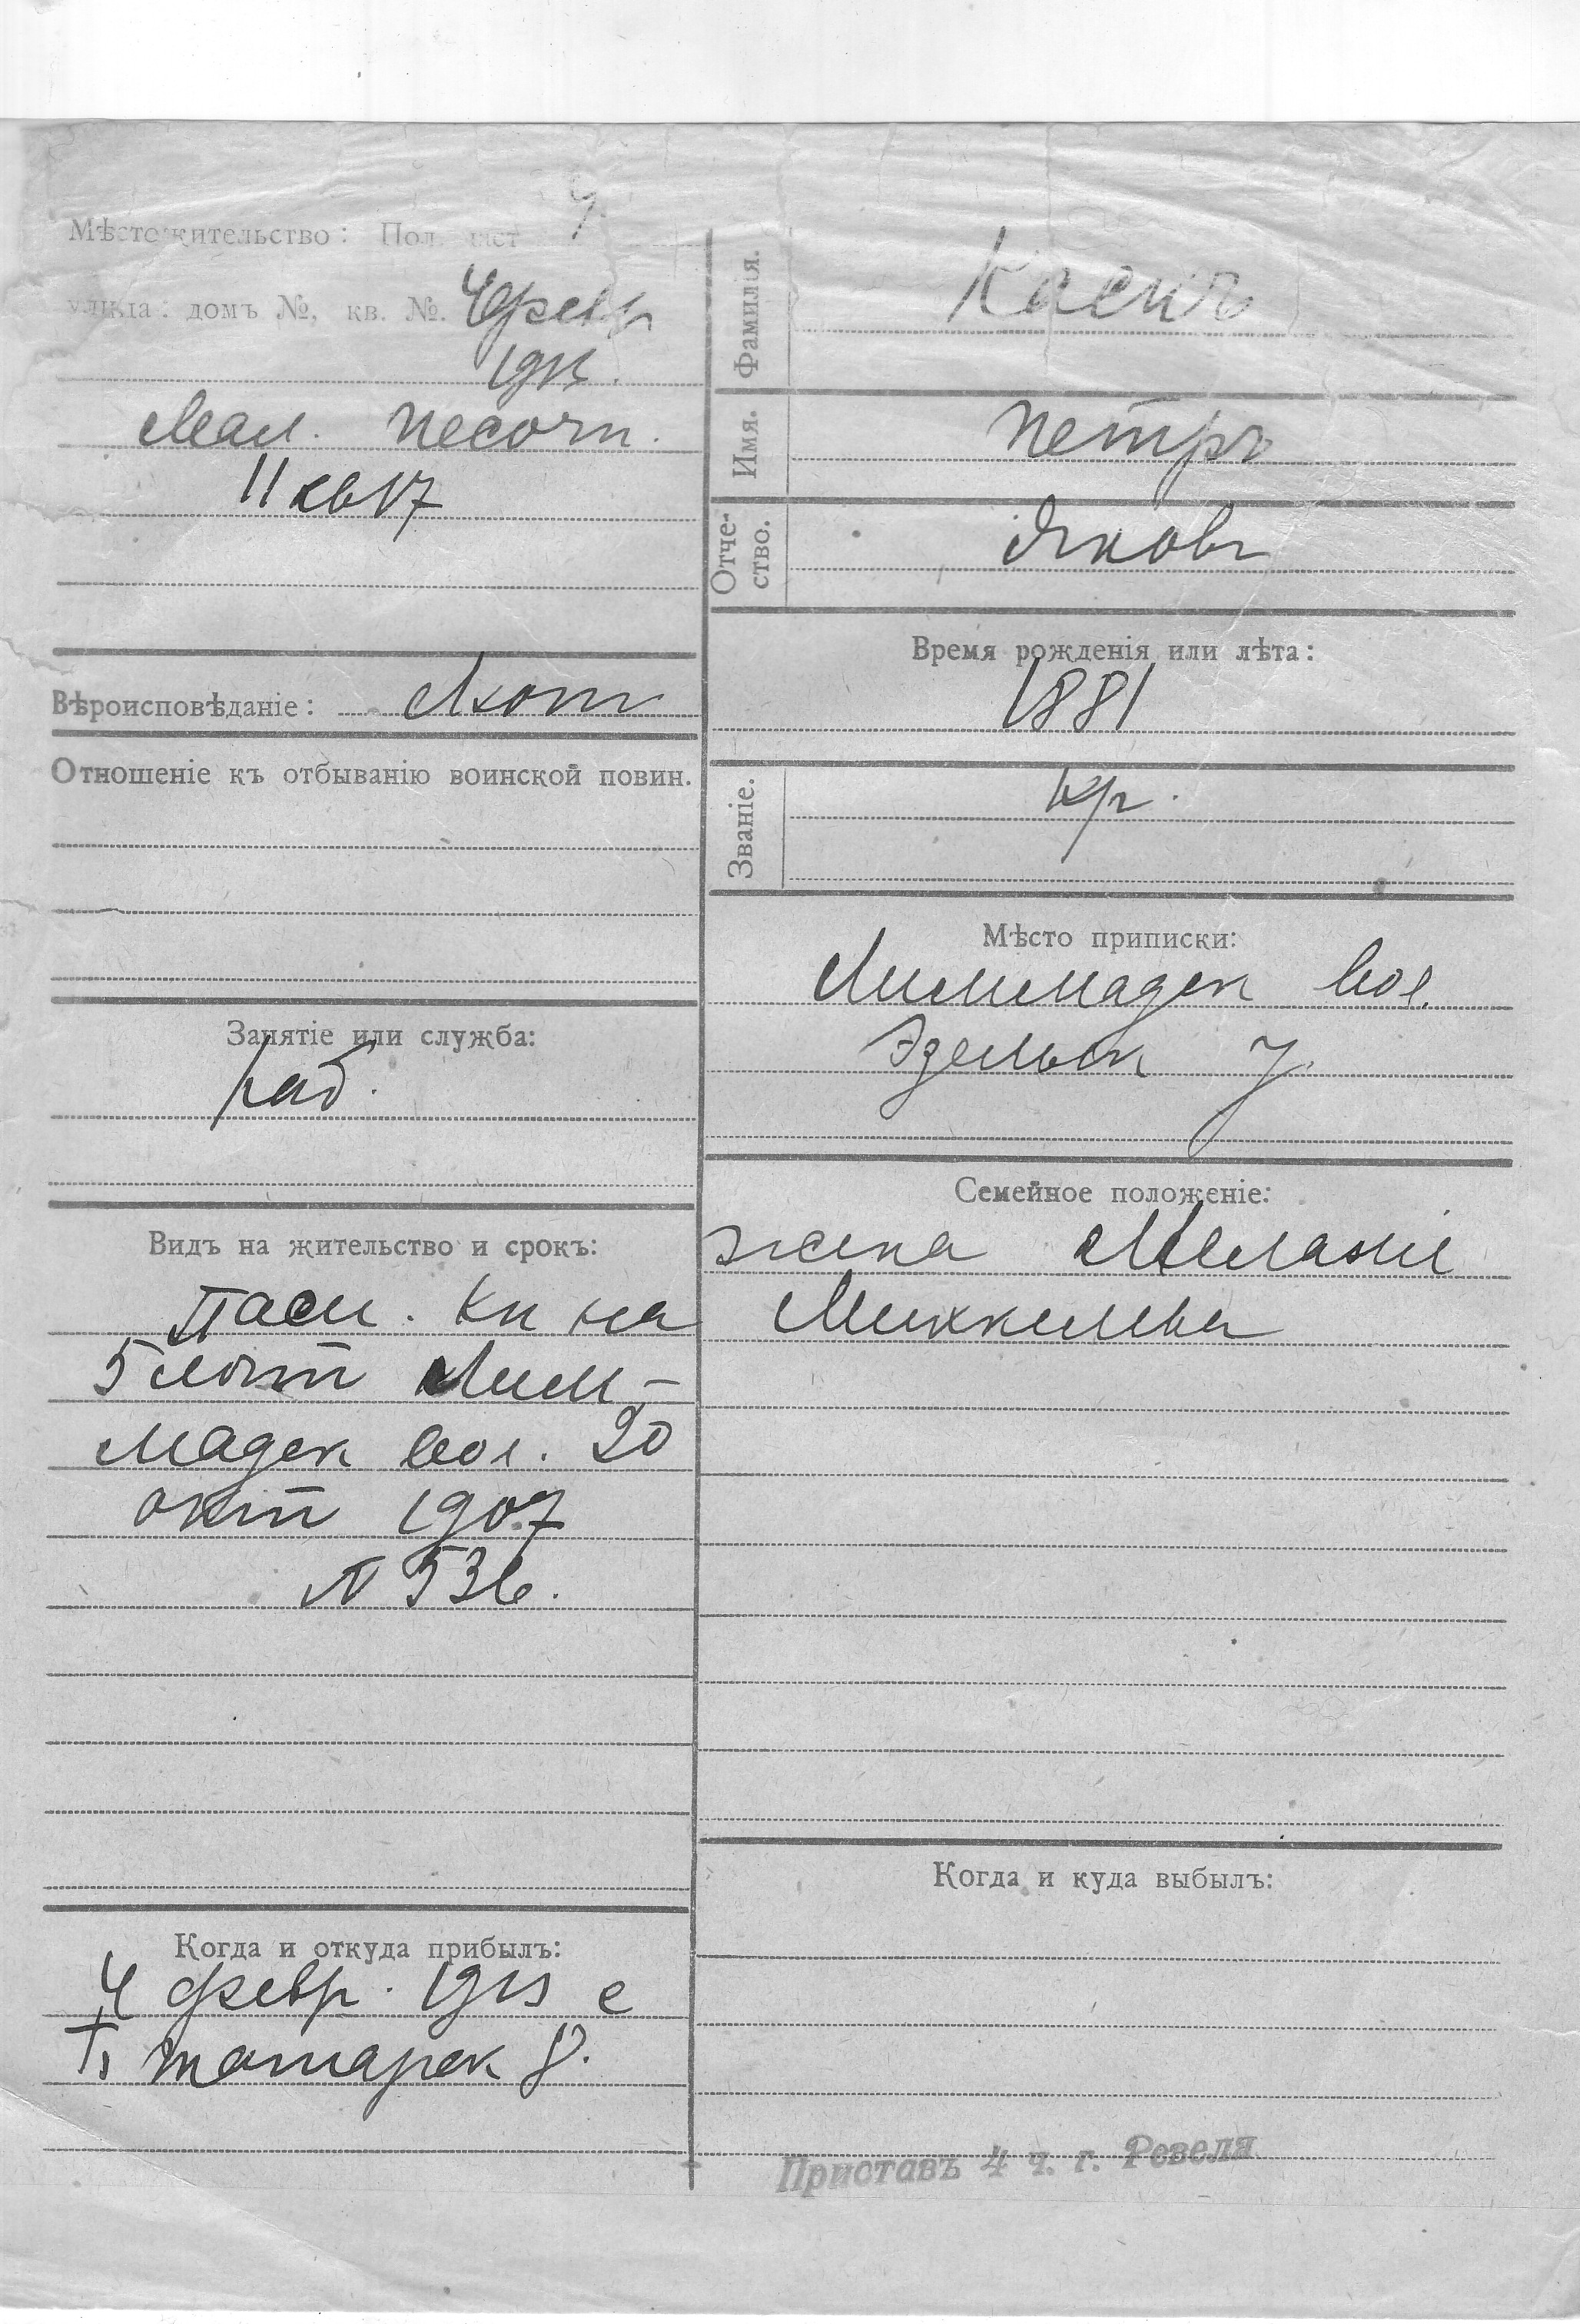 Мѣстожительство: Пол. част 4
улица: домъ №, кв. № 4 февр
1913.
Мал. Песочн.
11 кв 17
Вѣроисповѣданіе: Лют
Отношеніе къ отбыванію воинской повин.
Занятіе или служба:
раб.
Видъ на жительство и срокъ:
Пасп. кн на
5 лѣт Лим-
мадск вол. 20
окт 1907
N 536.
Когда и откуда прибылъ:
4 февр. 1913 с
Татарск 8.
Фамилія.
Имя. Петръ
Отче-
ство. Яковъ
Время рожденія или лѣта:
1881
Званіе. Кр.
Мѣсто приписки:
Лиммадск вол.
Эзельск у.
Семейное положеніе:
жена
Миккелева
Когда и куда выбылъ:
Приставъ 4 ч. г. Ревеля